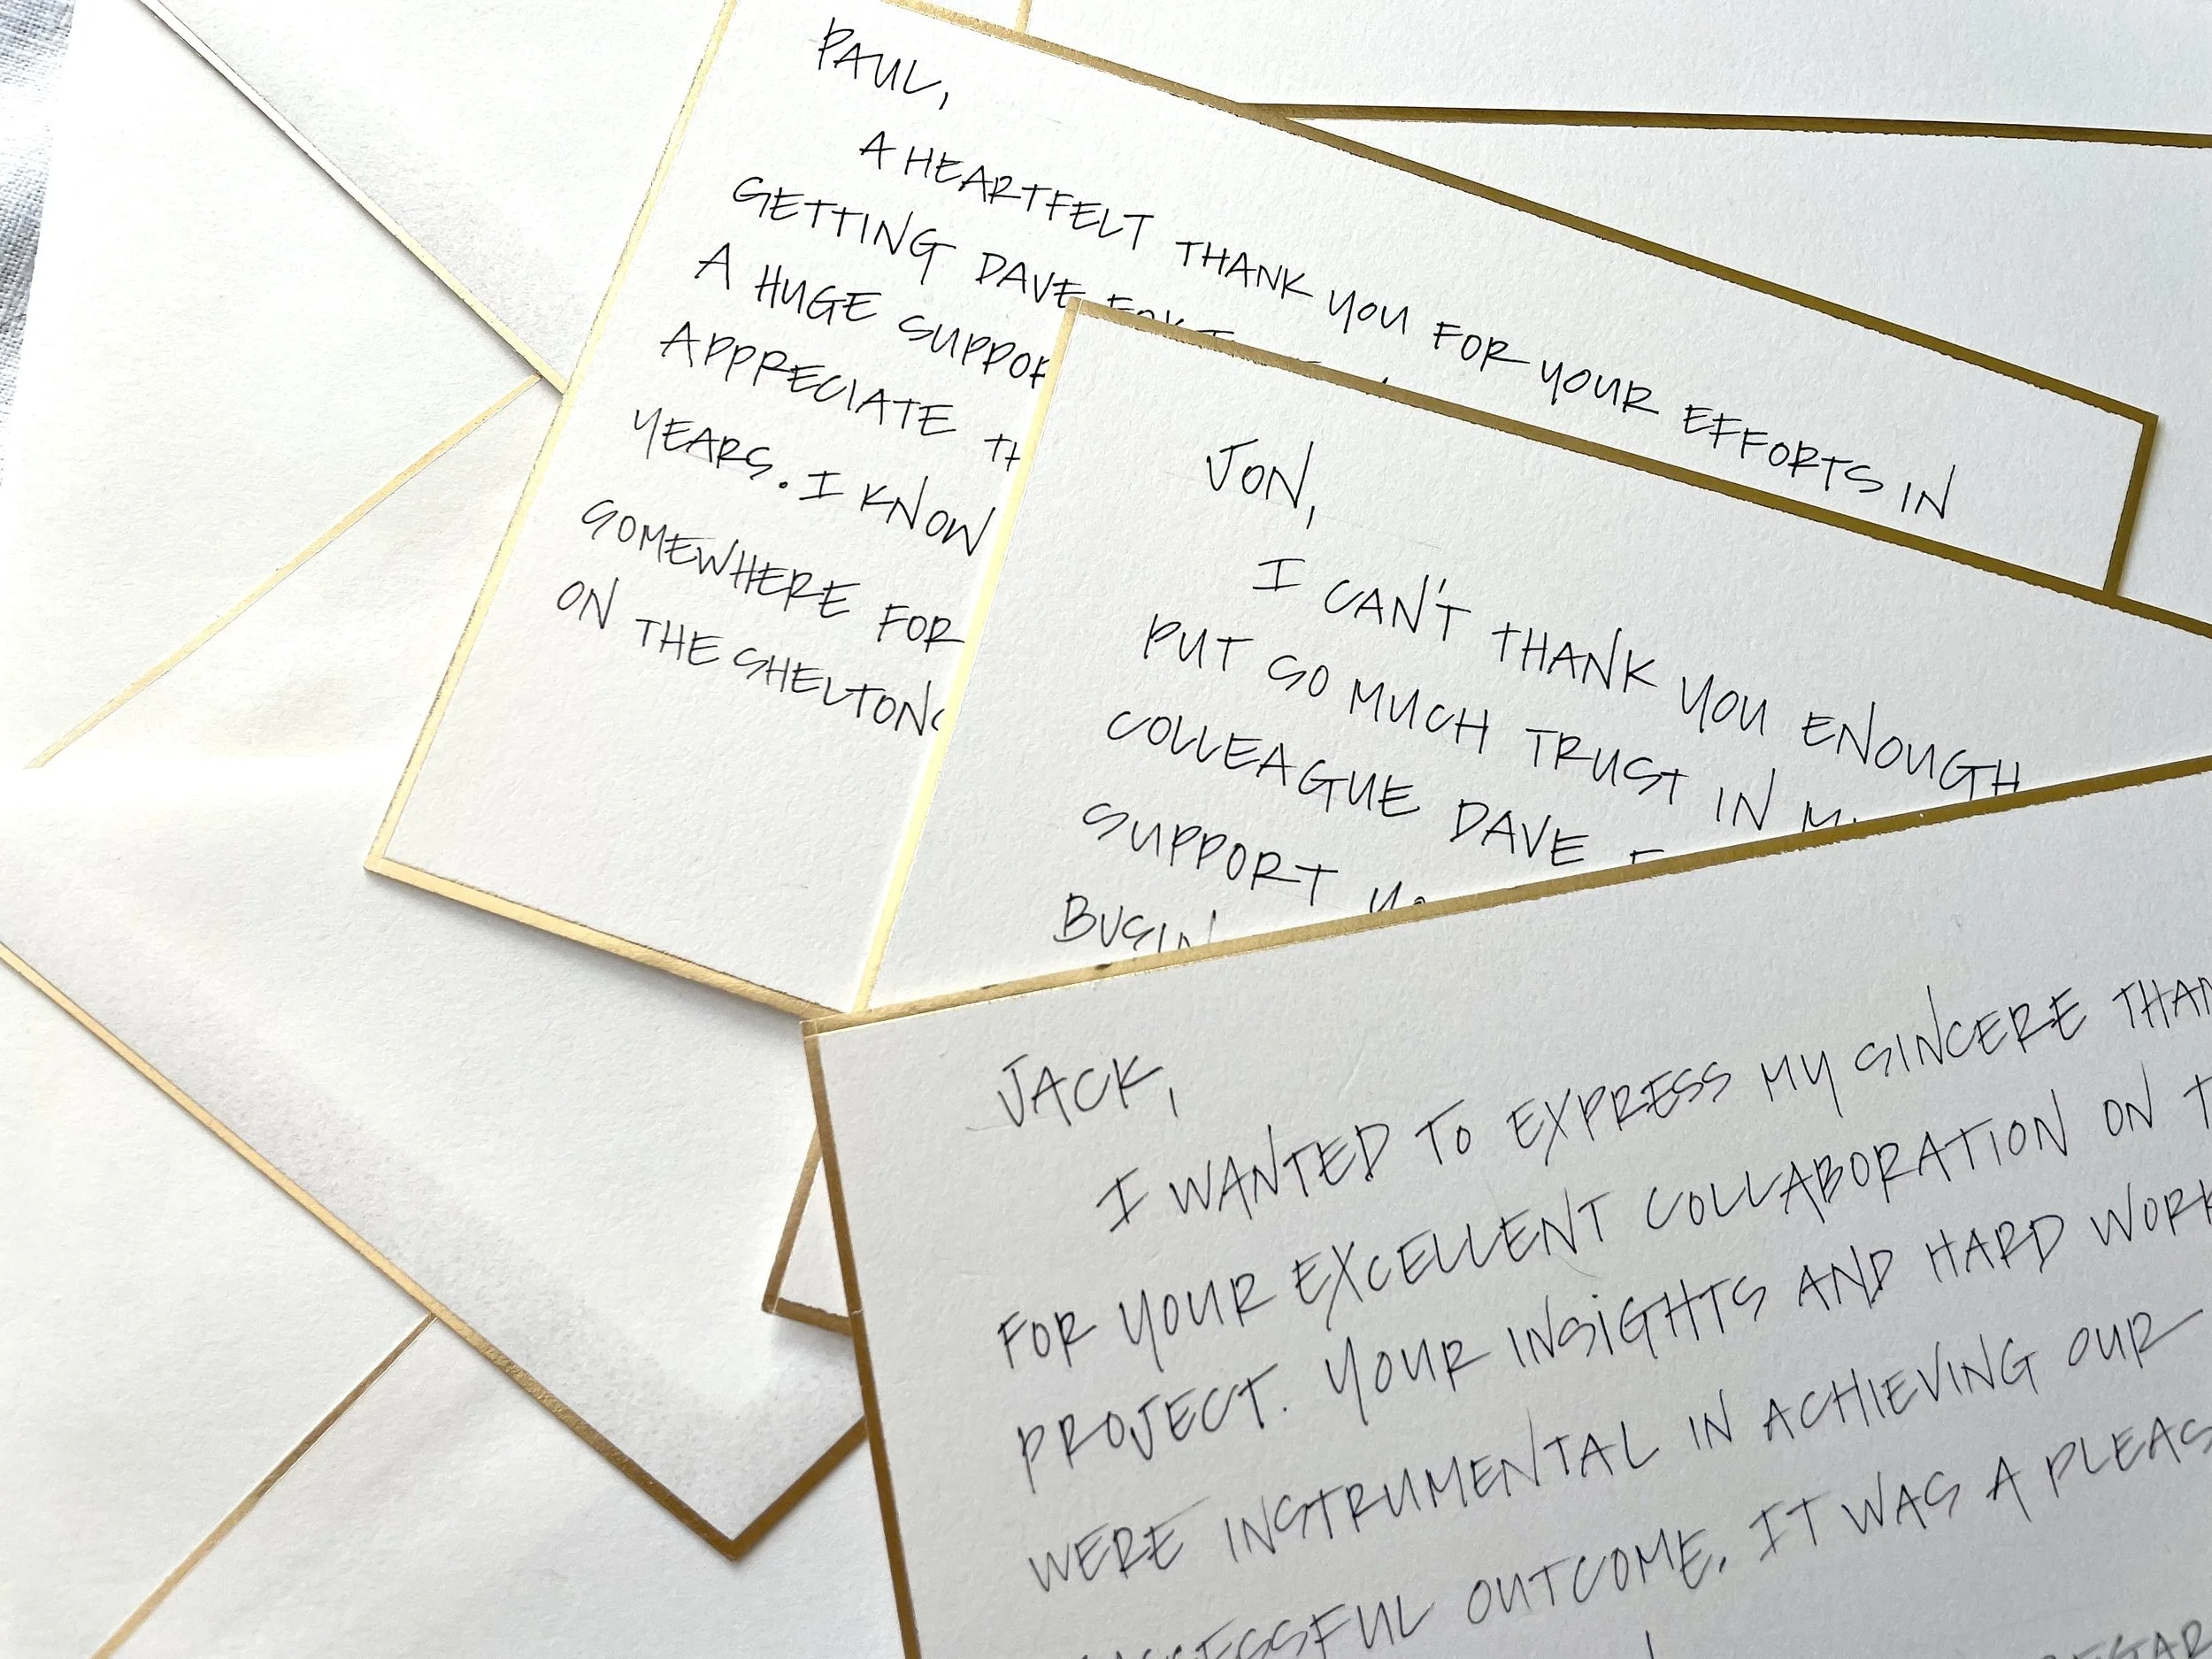 PAUL,
A HEARTFELT THANK YOU FOR YOUR EFFORTS IN
GETTING DAVE
A HUGE
APPRECIATE
YEARS. I KNOW
SOMEWHERE FOR
ON THE
JON,
I CAN'T THANK YOU ENOUGH
PUT SO MUCH TRUST IN
COLLEAGUE DAVE
SUPPORT
JACK,
I WANTED TO EXPRESS MY SINCERE
FOR YOUR EXCELLENT COLLABORATION ON
PROJECT. YOUR INSIGHTS AND HARD WORK
WERE INSTRUMENTAL IN ACHIEVING OUR
OUTCOME. IT WAS A